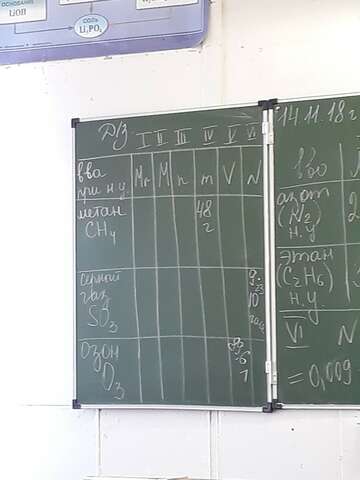 ОСНОВАНИЕ
LiOH
СОЛЬ
Li₃PO₄
Д/З
I II III IV V VI
в-ва
при н.у.
Mr M n m V N
метан
CH₄
48
г
сернистый
газ
SO₃
9·
10
23
Озон
O₃
14.11.18 г
азот
(N₂)
н.у
этан
(C₂H₆)
н.у.
VI N
= 0,009